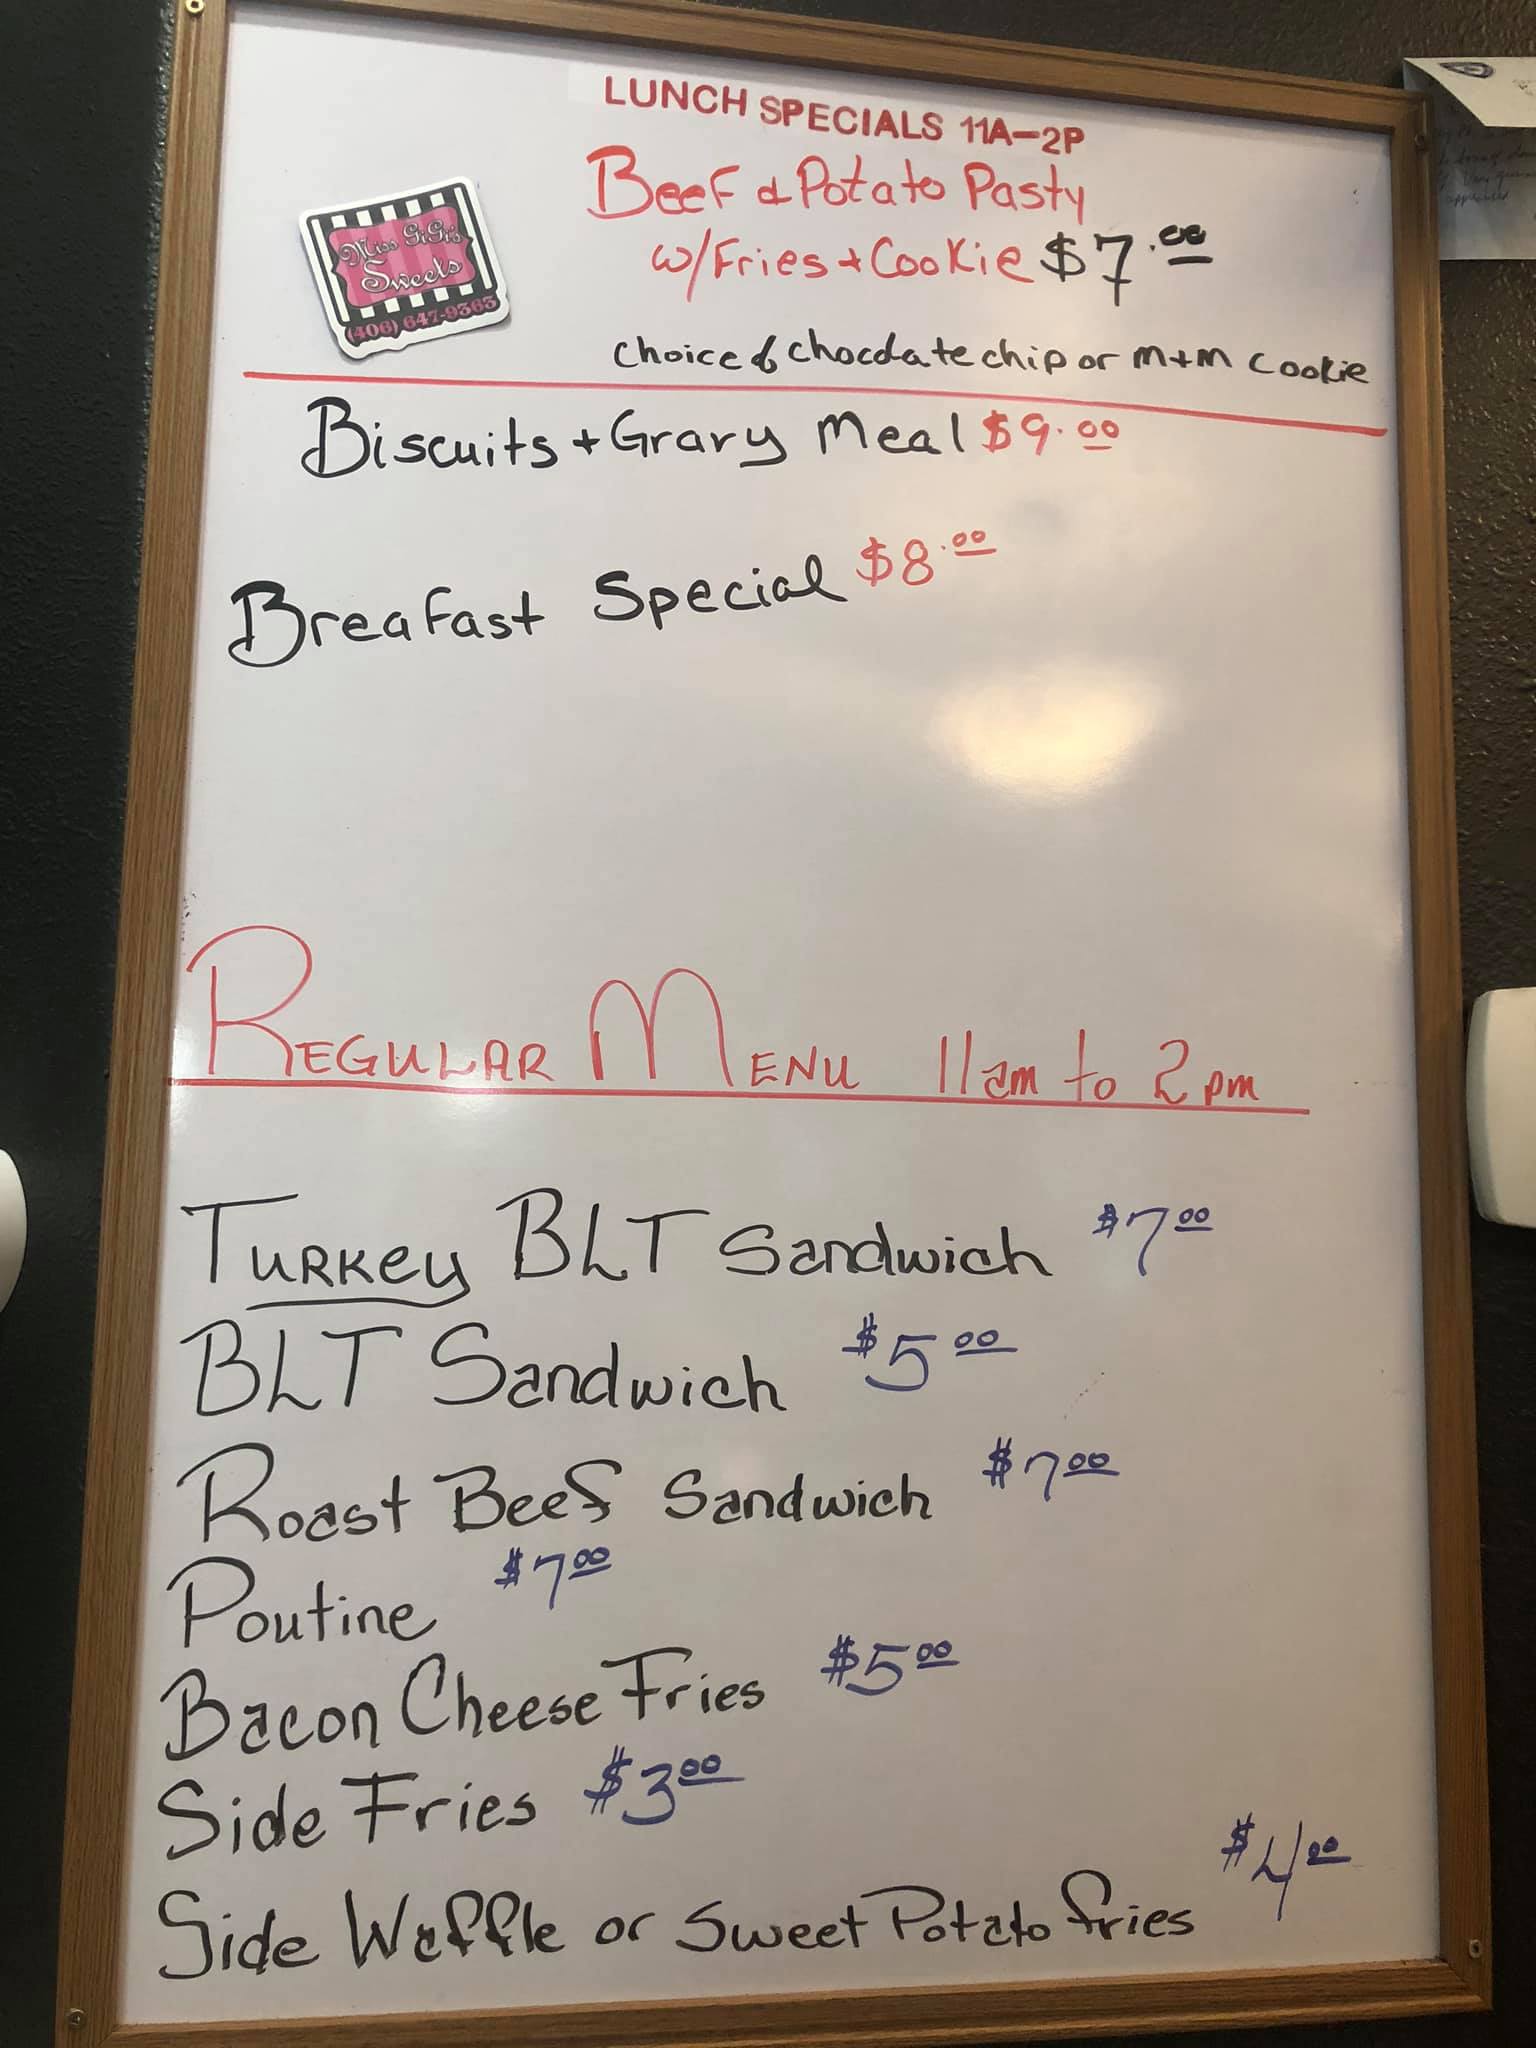 LUNCH SPECIALS 11A-2P
Beef & Potato Pasty
w/Fries + Cookie $7.00
Miss GiGi's
Sweets
(406) 647-9363
choice of chocolate chip or m+m cookie
Biscuits + Gravy Meal $9.00
Breafast Special $8.00
REGULAR MENU 11am to 2pm
TURKEY BLT Sandwich $7 00
BLT Sandwich $5 00
Roast Beef Sandwich $7 00
Poutine $7 00
Bacon Cheese Fries $5 00
Side Fries $3 00
Side Waffle or Sweet Potato fries $4 00